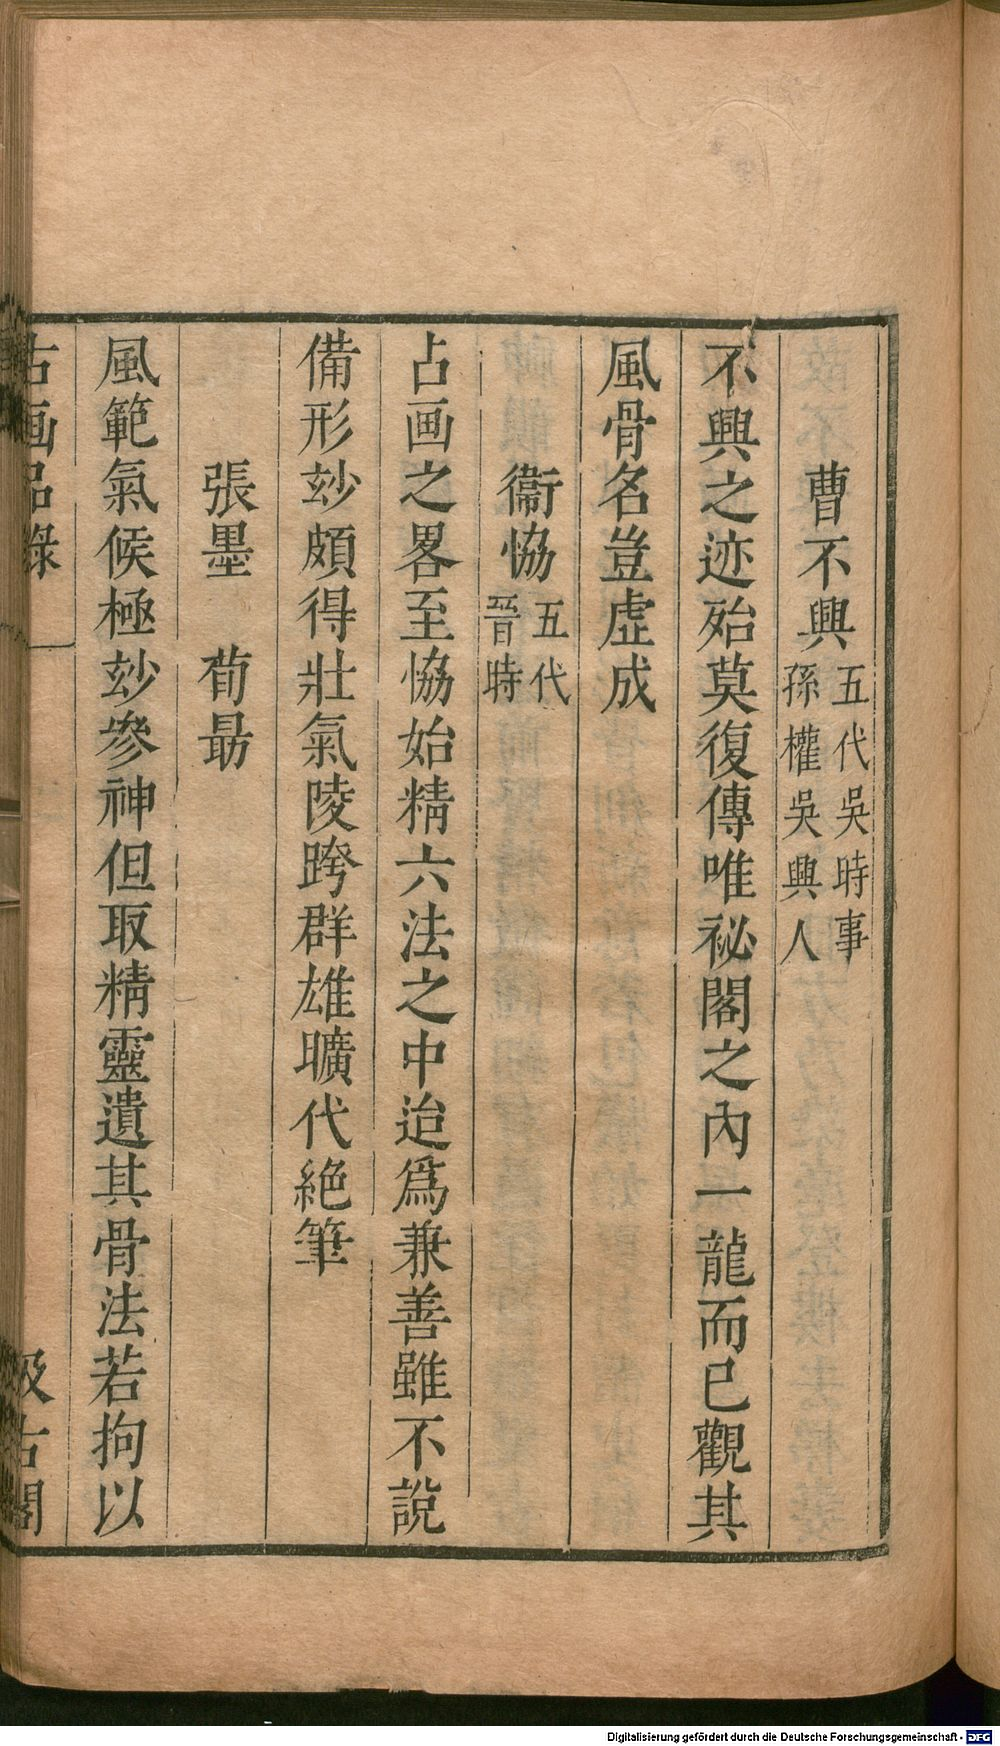 曹不興五代吳時事孫權吳興人
不興之迹殆莫復傳唯祕閣之內一龍而已觀其
風骨名豈虛成
衞恊五代晉時
占画之畧至恊始精六法之中迨爲兼善雖不說
備形玅頗得壯氣陵跨群雄曠代絕筆
張墨 荀勗
風範氣候極玅參神但取精靈遺其骨法若拘以
古画品錄 一 汲古閣
Digitalisierung gefördert durch die Deutsche Forschungsgemeinschaft - DFG